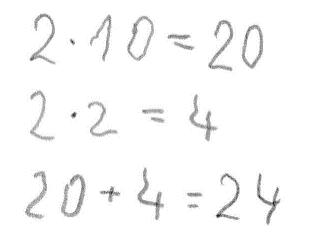 2 · 10 = 20
2 · 2 = 4
20 + 4 = 24